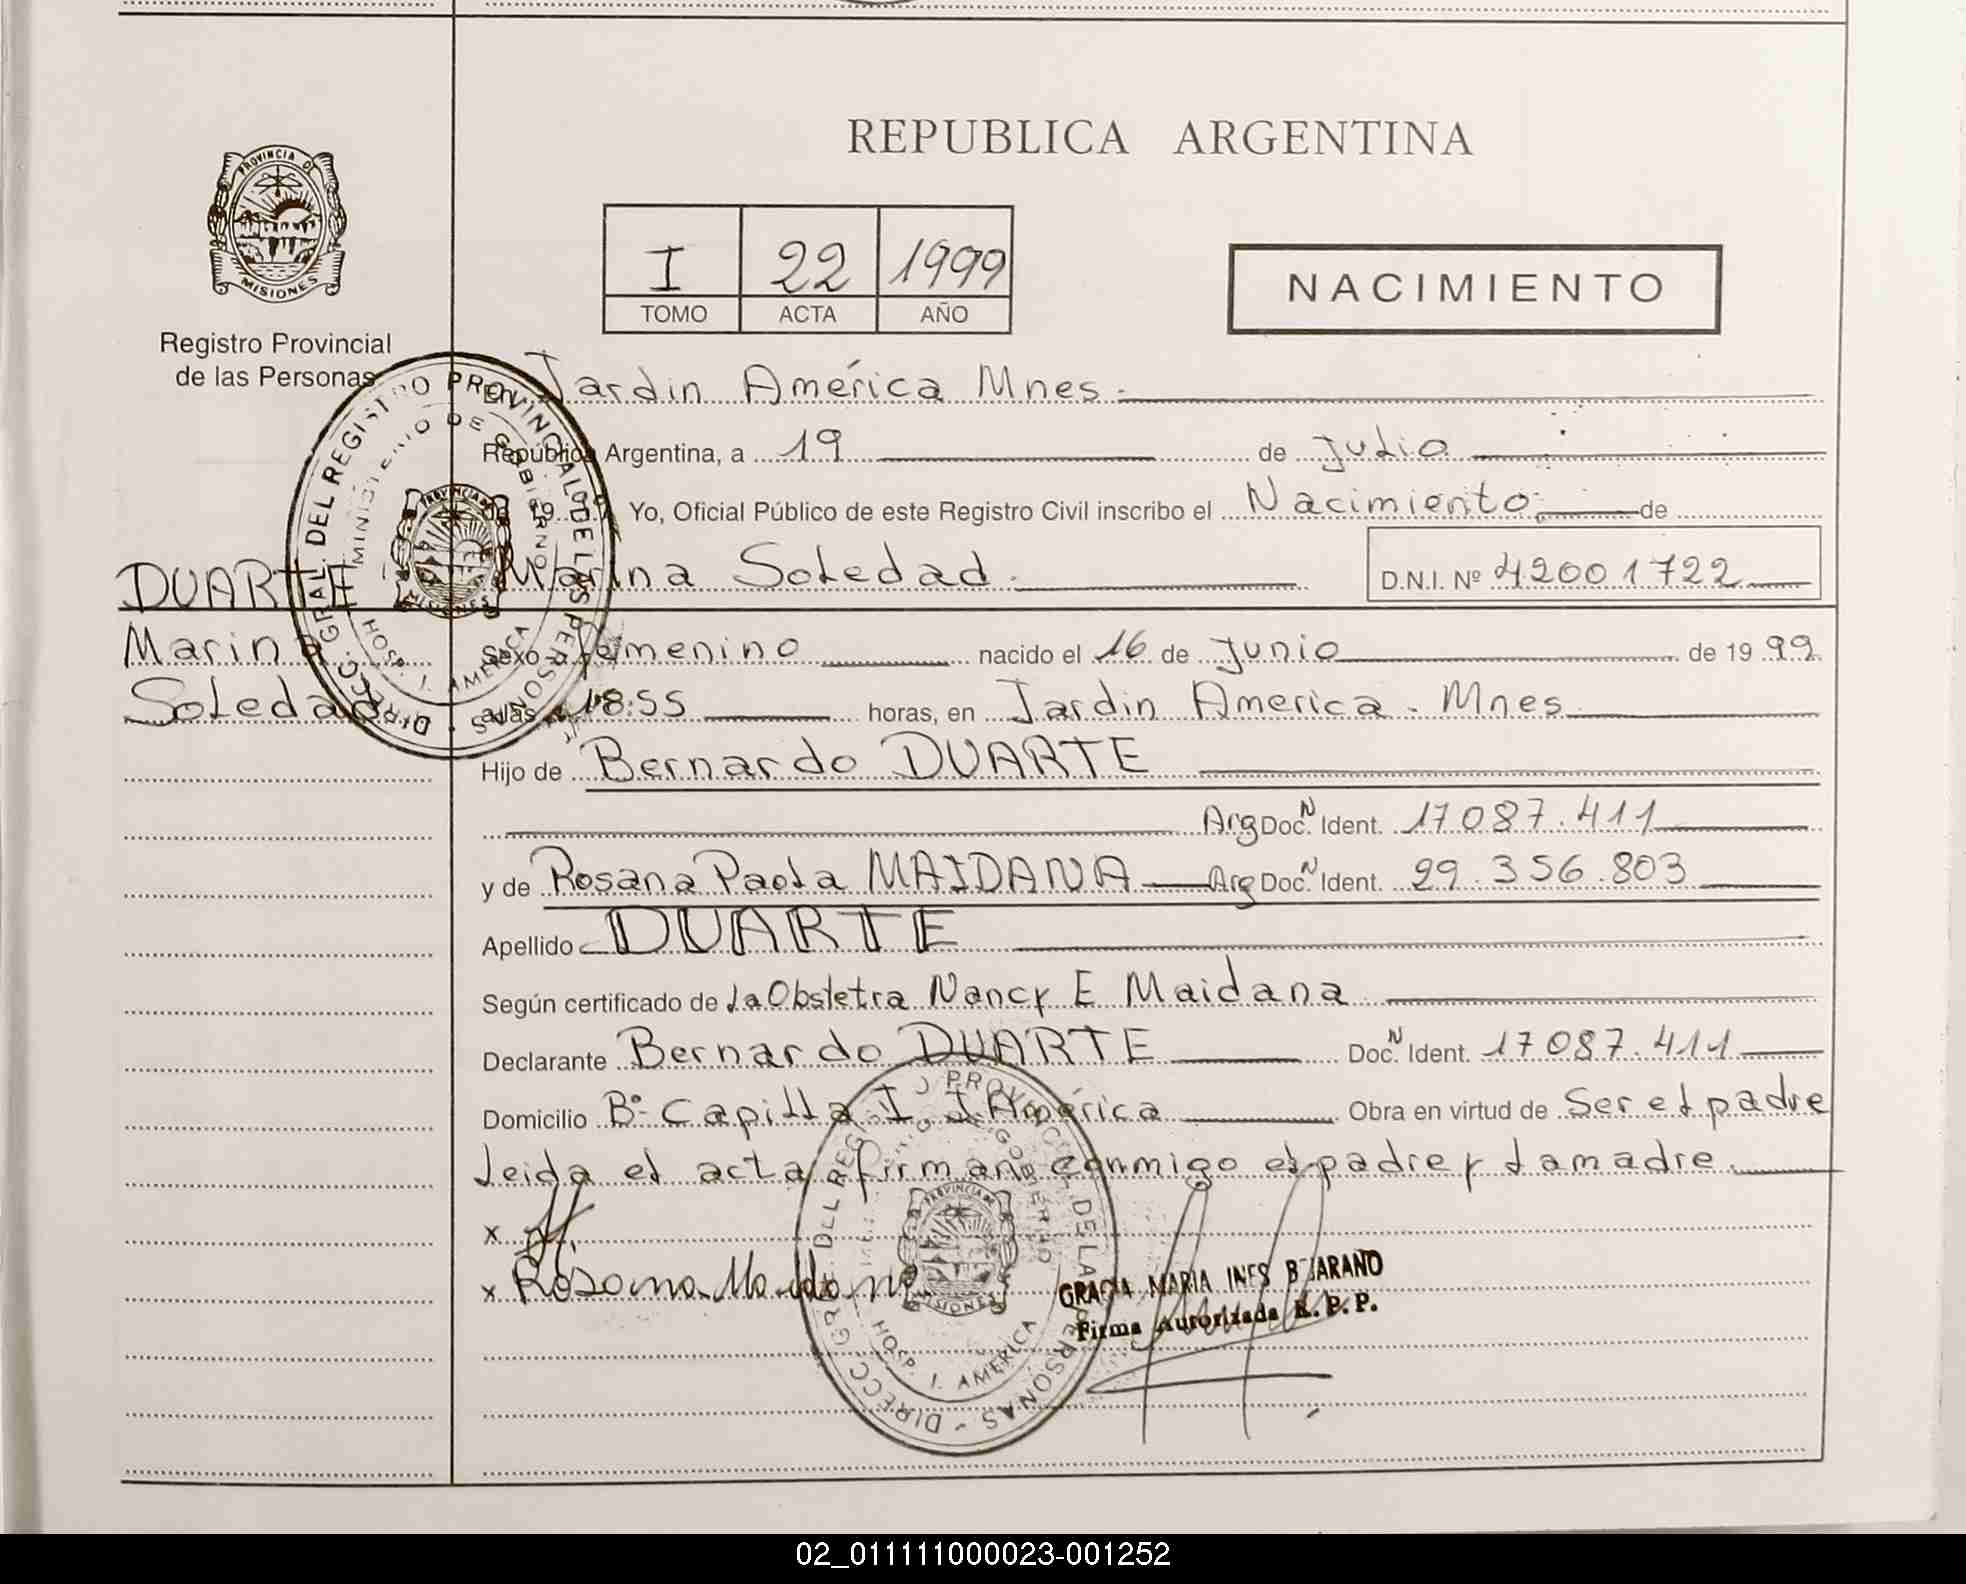 PROVINCIA DE
MISIONES
Registro Provincial
de las Personas
REPUBLICA ARGENTINA
I 22 1999
TOMO ACTA AÑO
NACIMIENTO
En Jardin América Mnes.
República Argentina, a 19 de Julio
de 19 Yo, Oficial Público de este Registro Civil inscribo el Nacimiento de
Marina Soledad. D.N.I. Nº 42001722
DUARTE
Marina
Soledad
Sexo Femenino nacido el 16 de Junio de 19 99
a las 18:55 horas, en Jardin America. Mnes
Hijo de Bernardo DUARTE
Arg Doc. N Ident. 17087.411
y de Rosana Paola MAIDANA Arg Doc. N Ident. 29.356.803
Apellido DUARTE
Según certificado de La Obstetra Nancy E Maidana
Declarante Bernardo DUARTE Doc. N Ident. 17087.411
Domicilio Bº Capilla I J América Obra en virtud de Ser el padre
Leida el acta firman conmigo el padre y la madre.
x
x Rosana Maidana
GRACIA MARIA INES BEJARANO
Firma Autorizada R. P. P.
DIRECC. GRAL. DEL REGISTRO PROVINCIAL DE LAS PERSONAS
MINISTERIO DE GOBIERNO
HOSP. J. AMERICA
PROVINCIA DE
MISIONES
DIRECC. GRAL. DEL REG PROVINCIAL DE LAS PERSONAS
GOBIERNO
HOSP. J. AMERICA
PROVINCIA DE
MISIONES
02_011111000023-001252